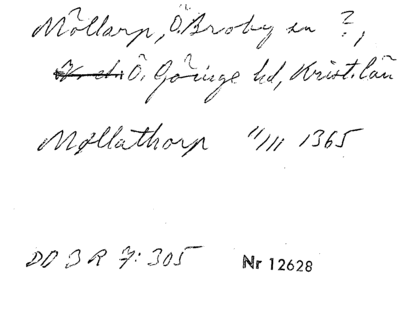 Möllarp, Ö. Broby sn ?,
Ö. Göinge hd, Krist. län
Møllathorp 11/111 1365
DD 3 R 7: 305 Nr 12628